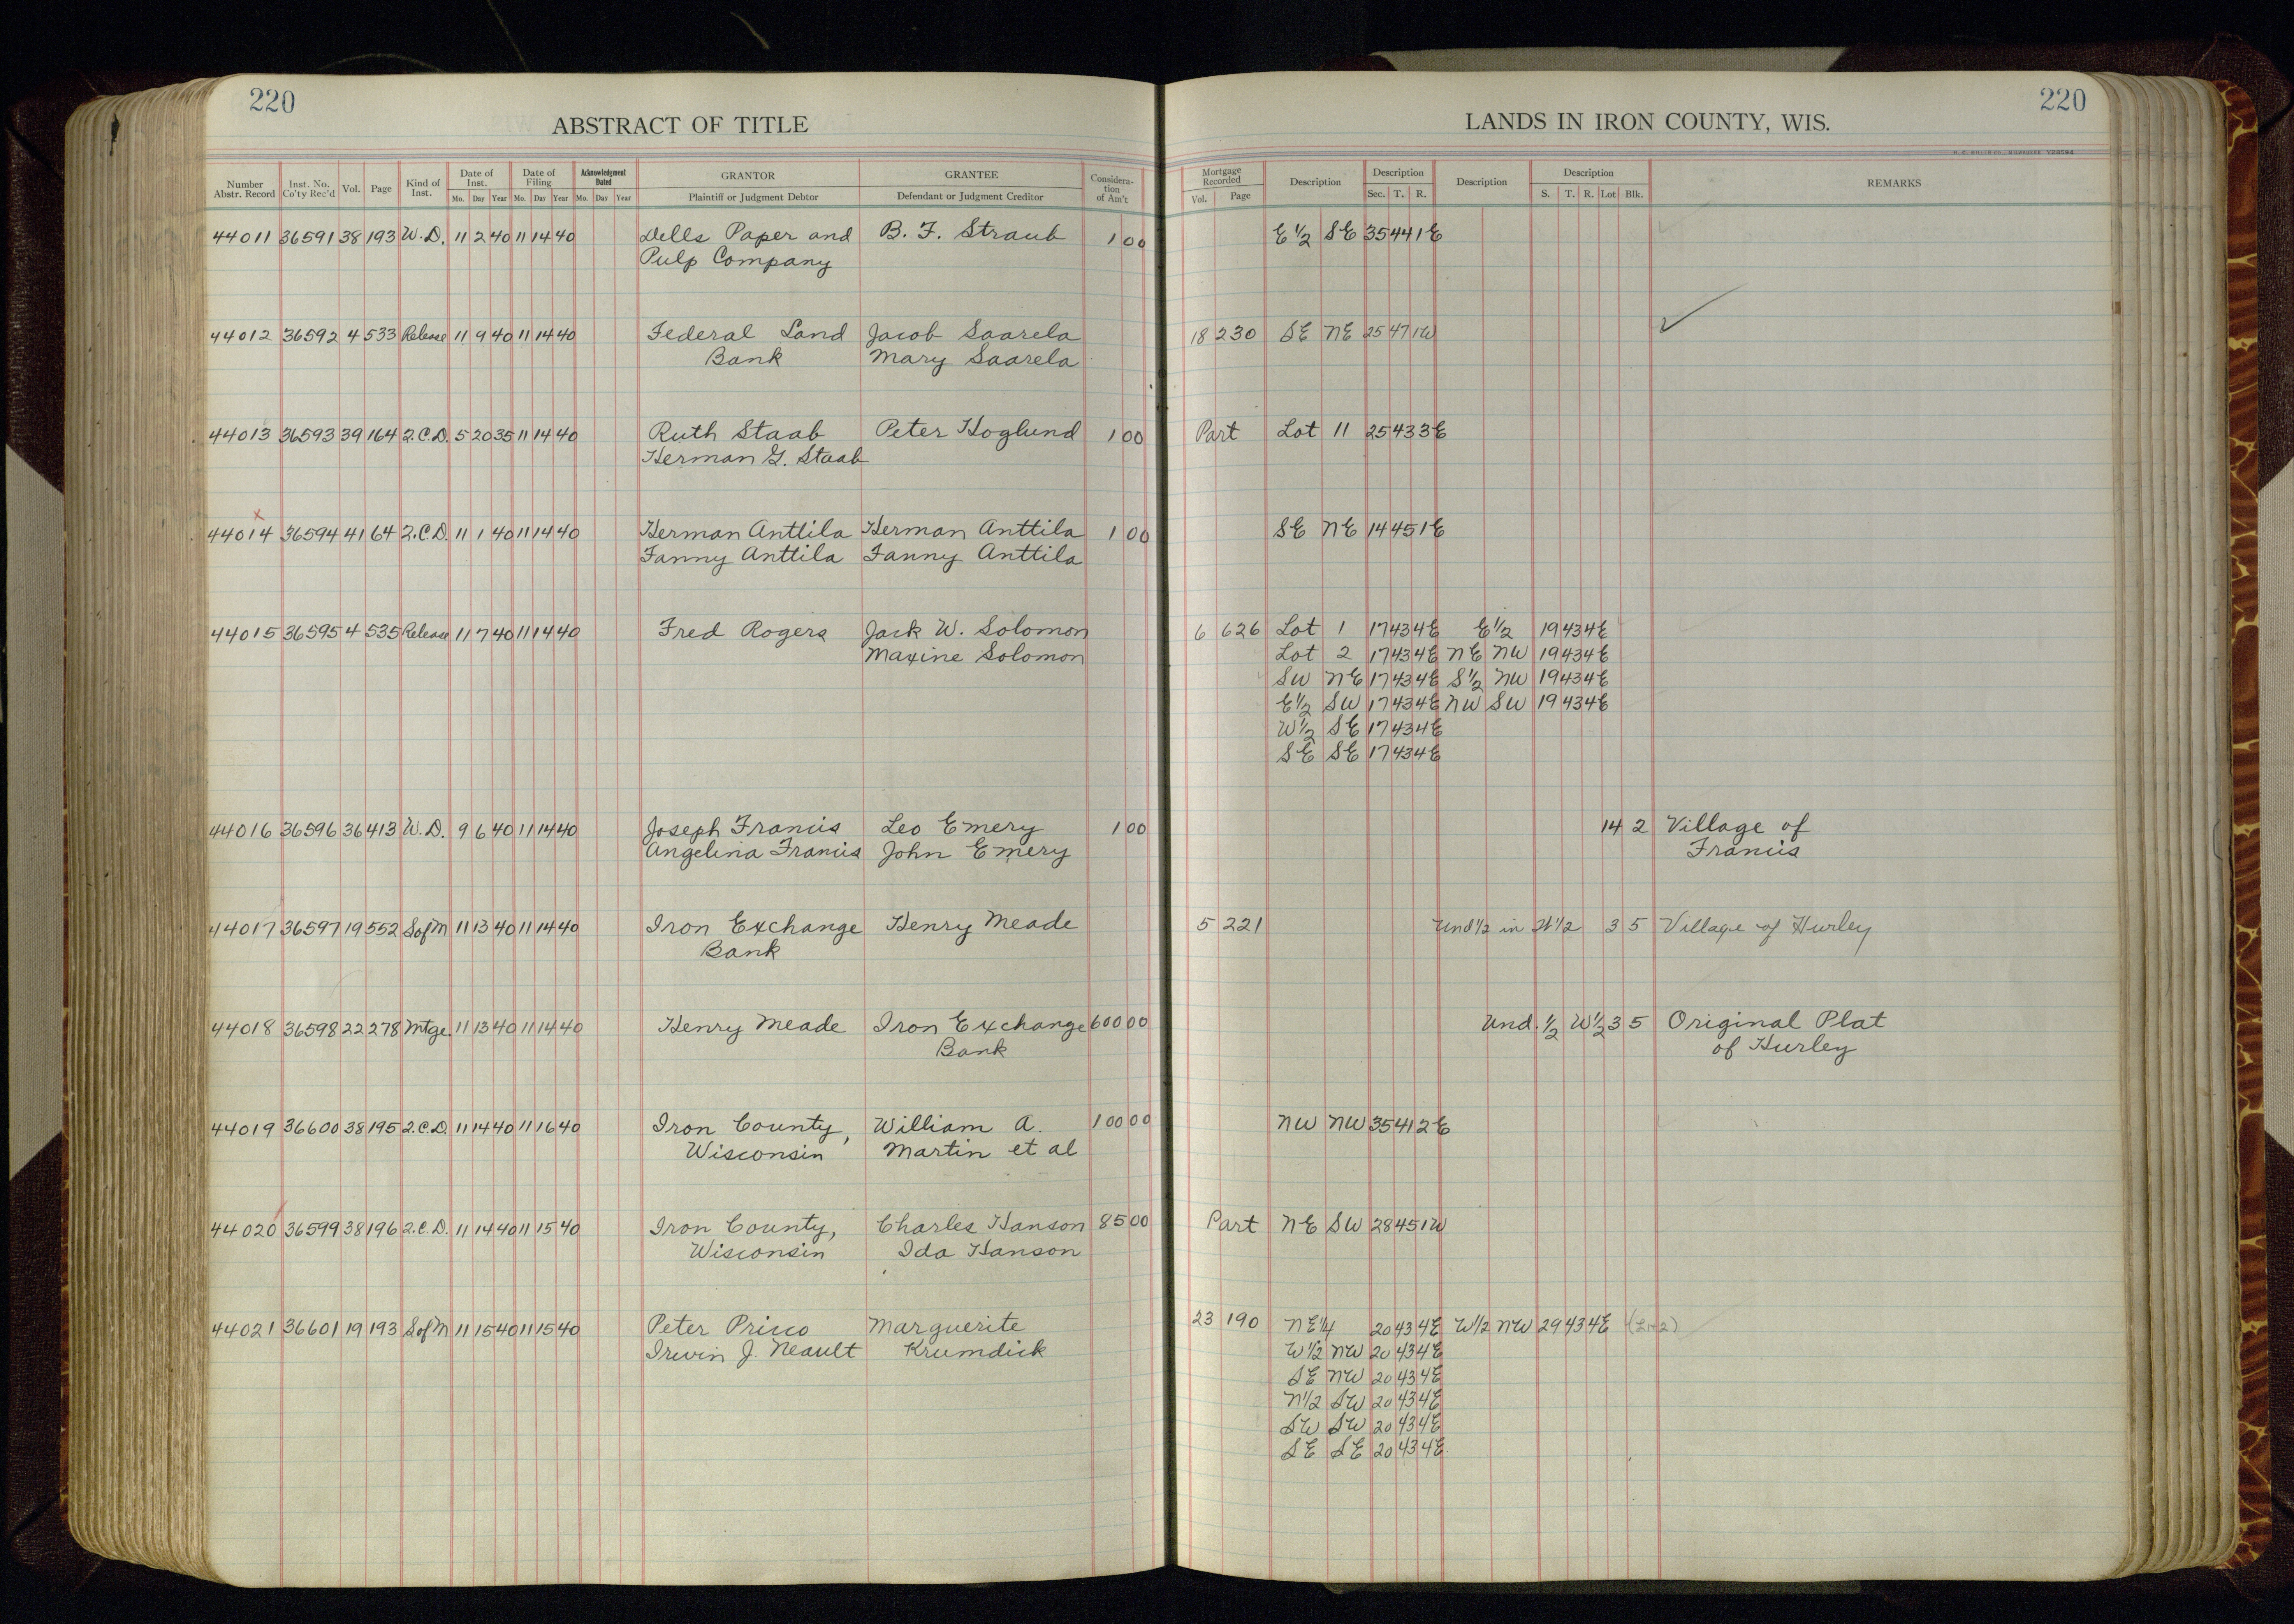 220
ABSTRACT OF TITLE
Number Abstr. Record Inst. No. Co'ty Rec'd Vol. Page Kind of Inst. Date of Inst. Mo. Day Year Date of Filing Mo. Day Year Acknowledgment Dated Mo. Day Year GRANTOR Plaintiff or Judgment Debtor GRANTEE Defendant or Judgment Creditor Consideration of Am't
44011 36591 38 193 W.D. 11 2 40 11 14 40 Dells Paper and B. F. Straub 1 00
Pulp Company
44012 36592 4 533 Release 11 9 40 11 14 40 Federal Land Jacob Saarela
Bank Mary Saarela
44013 36593 39 164 Q.C.D. 5 20 35 11 14 40 Ruth Staab Peter Hoglund 1 00
Herman G. Staab
x
44014 36594 41 64 Q.C.D. 11 1 40 11 14 40 Herman Anttila Herman Anttila 1 00
Fanny Anttila Fanny Anttila
44015 36595 4 535 Release 11 7 40 11 14 40 Fred Rogers Jack W. Solomon
Maxine Solomon
44016 36596 36 413 W.D. 9 6 40 11 14 40 Joseph Francis Leo Emery 1 00
Angelina Francis John Emery
44017 36597 19 552 S of M 11 13 40 11 14 40 Iron Exchange Henry Meade
Bank
44018 36598 22 278 Mtge. 11 13 40 11 14 40 Henry Meade Iron Exchange 600 00
Bank
44019 36600 38 195 Q.C.D. 11 14 40 11 16 40 Iron County, William A. 100 00
Wisconsin Martin et al
44020 36599 38 196 Q.C.D. 11 14 40 11 15 40 Iron County, Charles Hanson 85 00
Wisconsin Ida Hanson
44021 36601 19 193 S of M 11 15 40 11 15 40 Peter Pricco Marguerite
Irwin J. Neault Krumdick
220
LANDS IN IRON COUNTY, WIS.
Mortgage Recorded Vol. Page Description Description Sec. T. R. Description Description S. T. R. Lot Blk. REMARKS
E 1/2 SE 35 44 1E
18 230 SE NE 25 47 1W ✓
Part Lot 11 25 43 3E
SE NE 14 45 1E
6 626 Lot 1 17 43 4E E 1/2 19 43 4E
Lot 2 17 43 4E NE NW 19 43 4E
SW NE 17 43 4E S 1/2 NW 19 43 4E
E 1/2 SW 17 43 4E NW SW 19 43 4E
W 1/2 SE 17 43 4E
SE SE 17 43 4E
14 2 Village of
Francis
5 221 Und 1/2 in W 1/2 3 5 Village of Hurley
Und. 1/2 W 1/2 3 5 Original Plat
of Hurley
NW NW 35 41 2E
Part NE SW 28 45 1W
23 190 NE 1/4 20 43 4E W 1/2 NW 29 43 4E (L1+2)
W 1/2 NW 20 43 4E
SE NW 20 43 4E
N 1/2 SW 20 43 4E
SW SW 20 43 4E
SE SE 20 43 4E